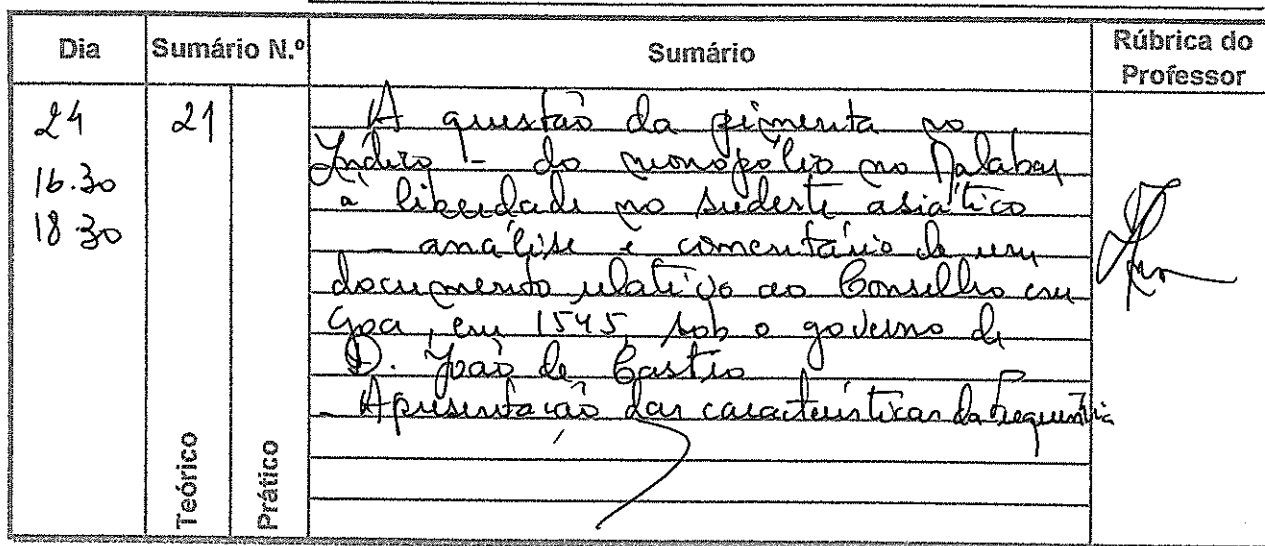 Dia Sumário N.º Sumário Rúbrica do Professor
24 21 A questão da pimenta no
Índico - do monopólio no Malabar
16.30 à liberdade no sudeste asiático
18 30 — análise e comentário de um
documento relativo ao Conselho em
Goa, em 1545, sob o governo de
D. João de Castro
- Apresentação das características da Frequência
Teórico Prático